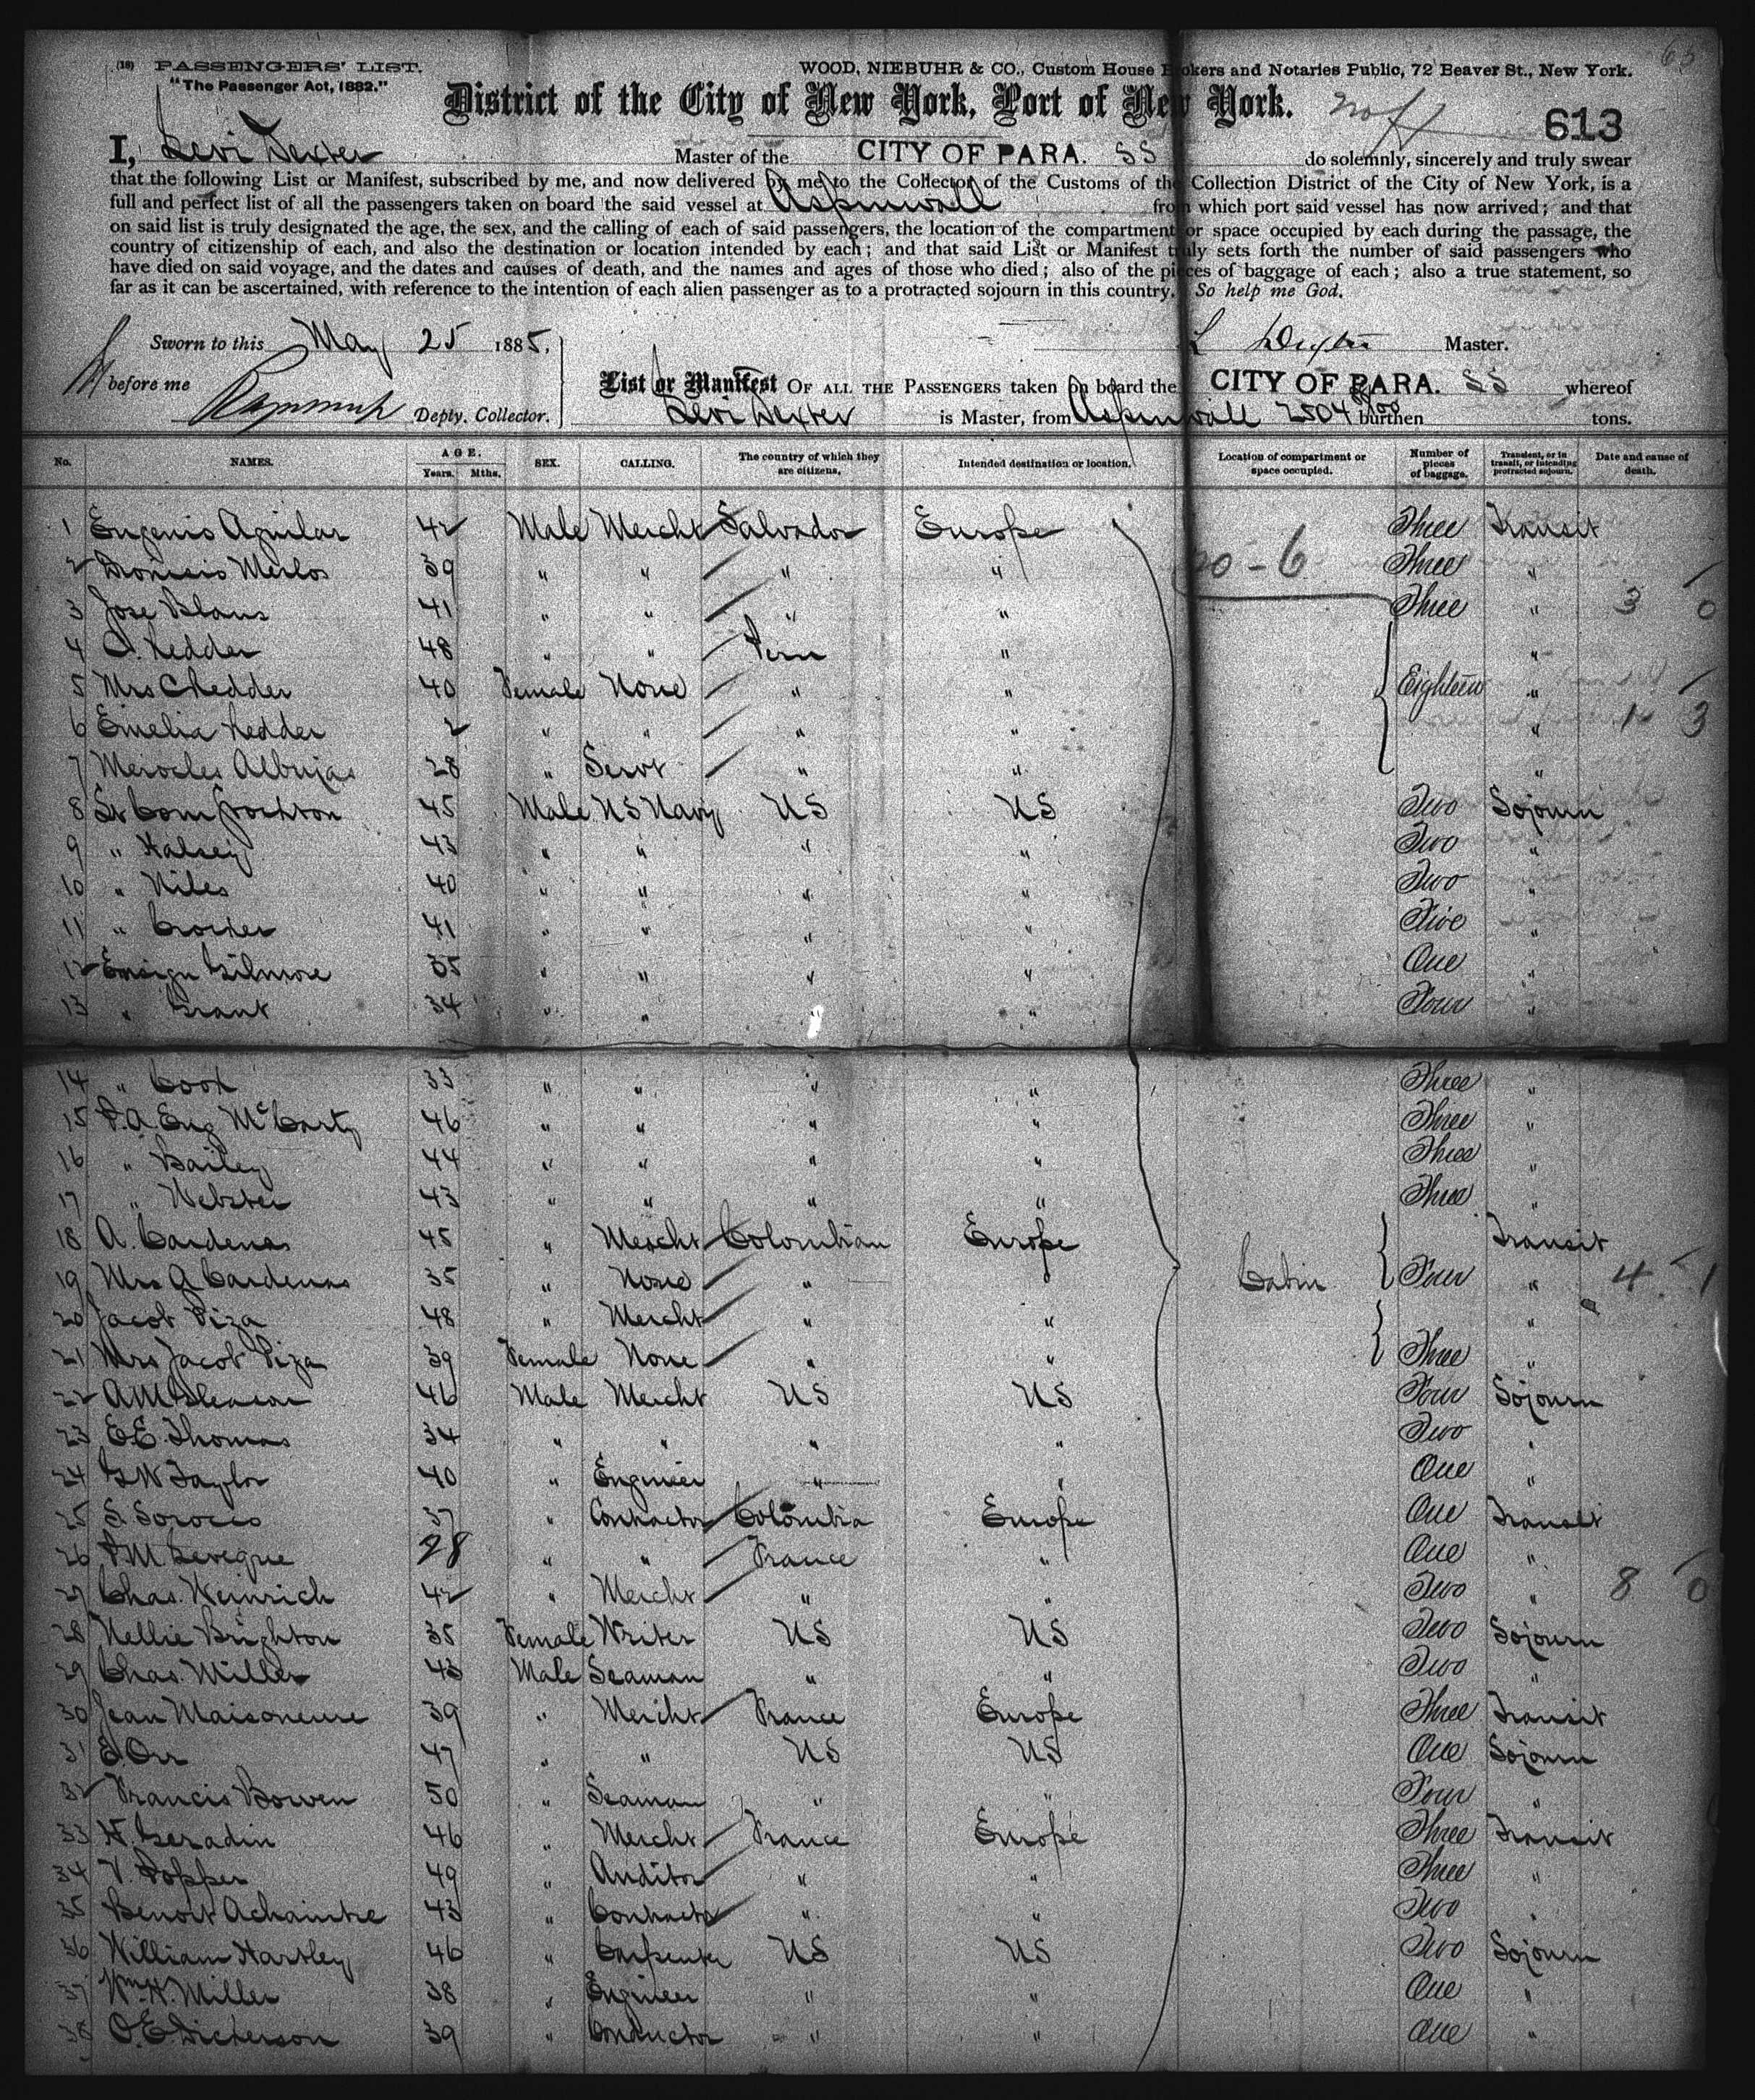 (18) PASSENGERS' LIST.
"The Passenger Act, 1882."
WOOD, NIEBUHR & CO., Custom House Brokers and Notaries Public, 72 Beaver St., New York.
District of the City of New York, Port of New York.
613
I, Levi Dexter Master of the CITY OF PARA. SS do solemnly, sincerely and truly swear
that the following List or Manifest, subscribed by me, and now delivered by me to the Collector of the Customs of the Collection District of the City of New York, is a
full and perfect list of all the passengers taken on board the said vessel at Aspinwall from which port said vessel has now arrived; and that
on said list is truly designated the age, the sex, and the calling of each of said passengers, the location of the compartment or space occupied by each during the passage, the
country of citizenship of each, and also the destination or location intended by each; and that said List or Manifest truly sets forth the number of said passengers who
have died on said voyage, and the dates and causes of death, and the names and ages of those who died; also of the pieces of baggage of each; also a true statement, so
far as it can be ascertained, with reference to the intention of each alien passenger as to a protracted sojourn in this country. So help me God.
Sworn to this May 25 1885, L Dexter Master.
before me Deply. Collector.
List or Manifest OF ALL THE PASSENGERS taken on board the CITY OF PARA. SS whereof
Levi Dexter is Master, from Aspinwall 2504 burthen tons.
No. NAMES. AGE. Years. Mths. SEX. CALLING. The country of which they are citizens. Intended destination or location. Location of compartment or space occupied. Number of pieces of baggage. Transient, or in transit, or intending protracted sojourn. Date and cause of death.
1 Eugenio Aguilar 42 Male Mercht Salvador Europe Three Transit
2 Merlos 39 " " " " Three "
20-6
3 Jose Blans 41 " " " " Three " 3 0
4 C. Hedder 48 " " Peru " "
5 Mrs C Hedder 40 Female None " " Eighteen "
6 Emelia Hedder 2 " " " " " 1 3
7 Albujas 28 " Servt " " "
8 Lt Com 45 Male US Navy US US Two Sojourn
9 " Halsey 43 " " " " Two "
10 " Niles 40 " " " " Two "
11 " 41 " " " " Five "
12 Ensign Gilmore 35 " " " " One "
13 " Grant 34 " " " " Four "
14 " Cook 33 " " " " Three "
15 P.A. Eng McCarty 46 " " " " Three "
16 " Bailey 44 " " " " Three "
17 " Webster 43 " " " " Three "
18 A. Cardenas 45 " Mercht Colombian Europe Transit
19 Mrs A Cardenas 35 " None " " Cabin Four " 4 1
20 Jacob Piza 48 " Mercht " " "
21 Mrs Jacob Piza 39 Female None " " Three "
22 A M Gleason 46 Male Mercht US US Four Sojourn
23 E E Thomas 34 " " " " Two "
24 G W Taylor 40 " Engineer " " One "
25 S. Sorocco 37 " Contractor Colombia Europe One Transit
26 P M Leveque 28 " " France " One "
27 Chas. Heinrich 42 " Mercht " " Two " 8 0
28 Nellie Brighton 35 Female Writer US US Two Sojourn
29 Chas. Miller 43 Male Seaman " " Two "
30 Jean Maisoneuve 39 " Mercht France Europe Three Transit
31 E. Orr 47 " " US US One Sojourn
32 Francis Bowen 50 " Seaman " " Four "
33 H. Geradin 46 " Mercht France Europe Three Transit
34 V. Popper 49 " Auditor " " Three "
35 Benoit Achaintre 43 " Contractor " " Two "
36 William Hartley 46 " Carpenter US US Two Sojourn
37 Wm H. Miller 38 " Engineer " " One "
38 O.E. Dickerson 39 " Conductor " " One "